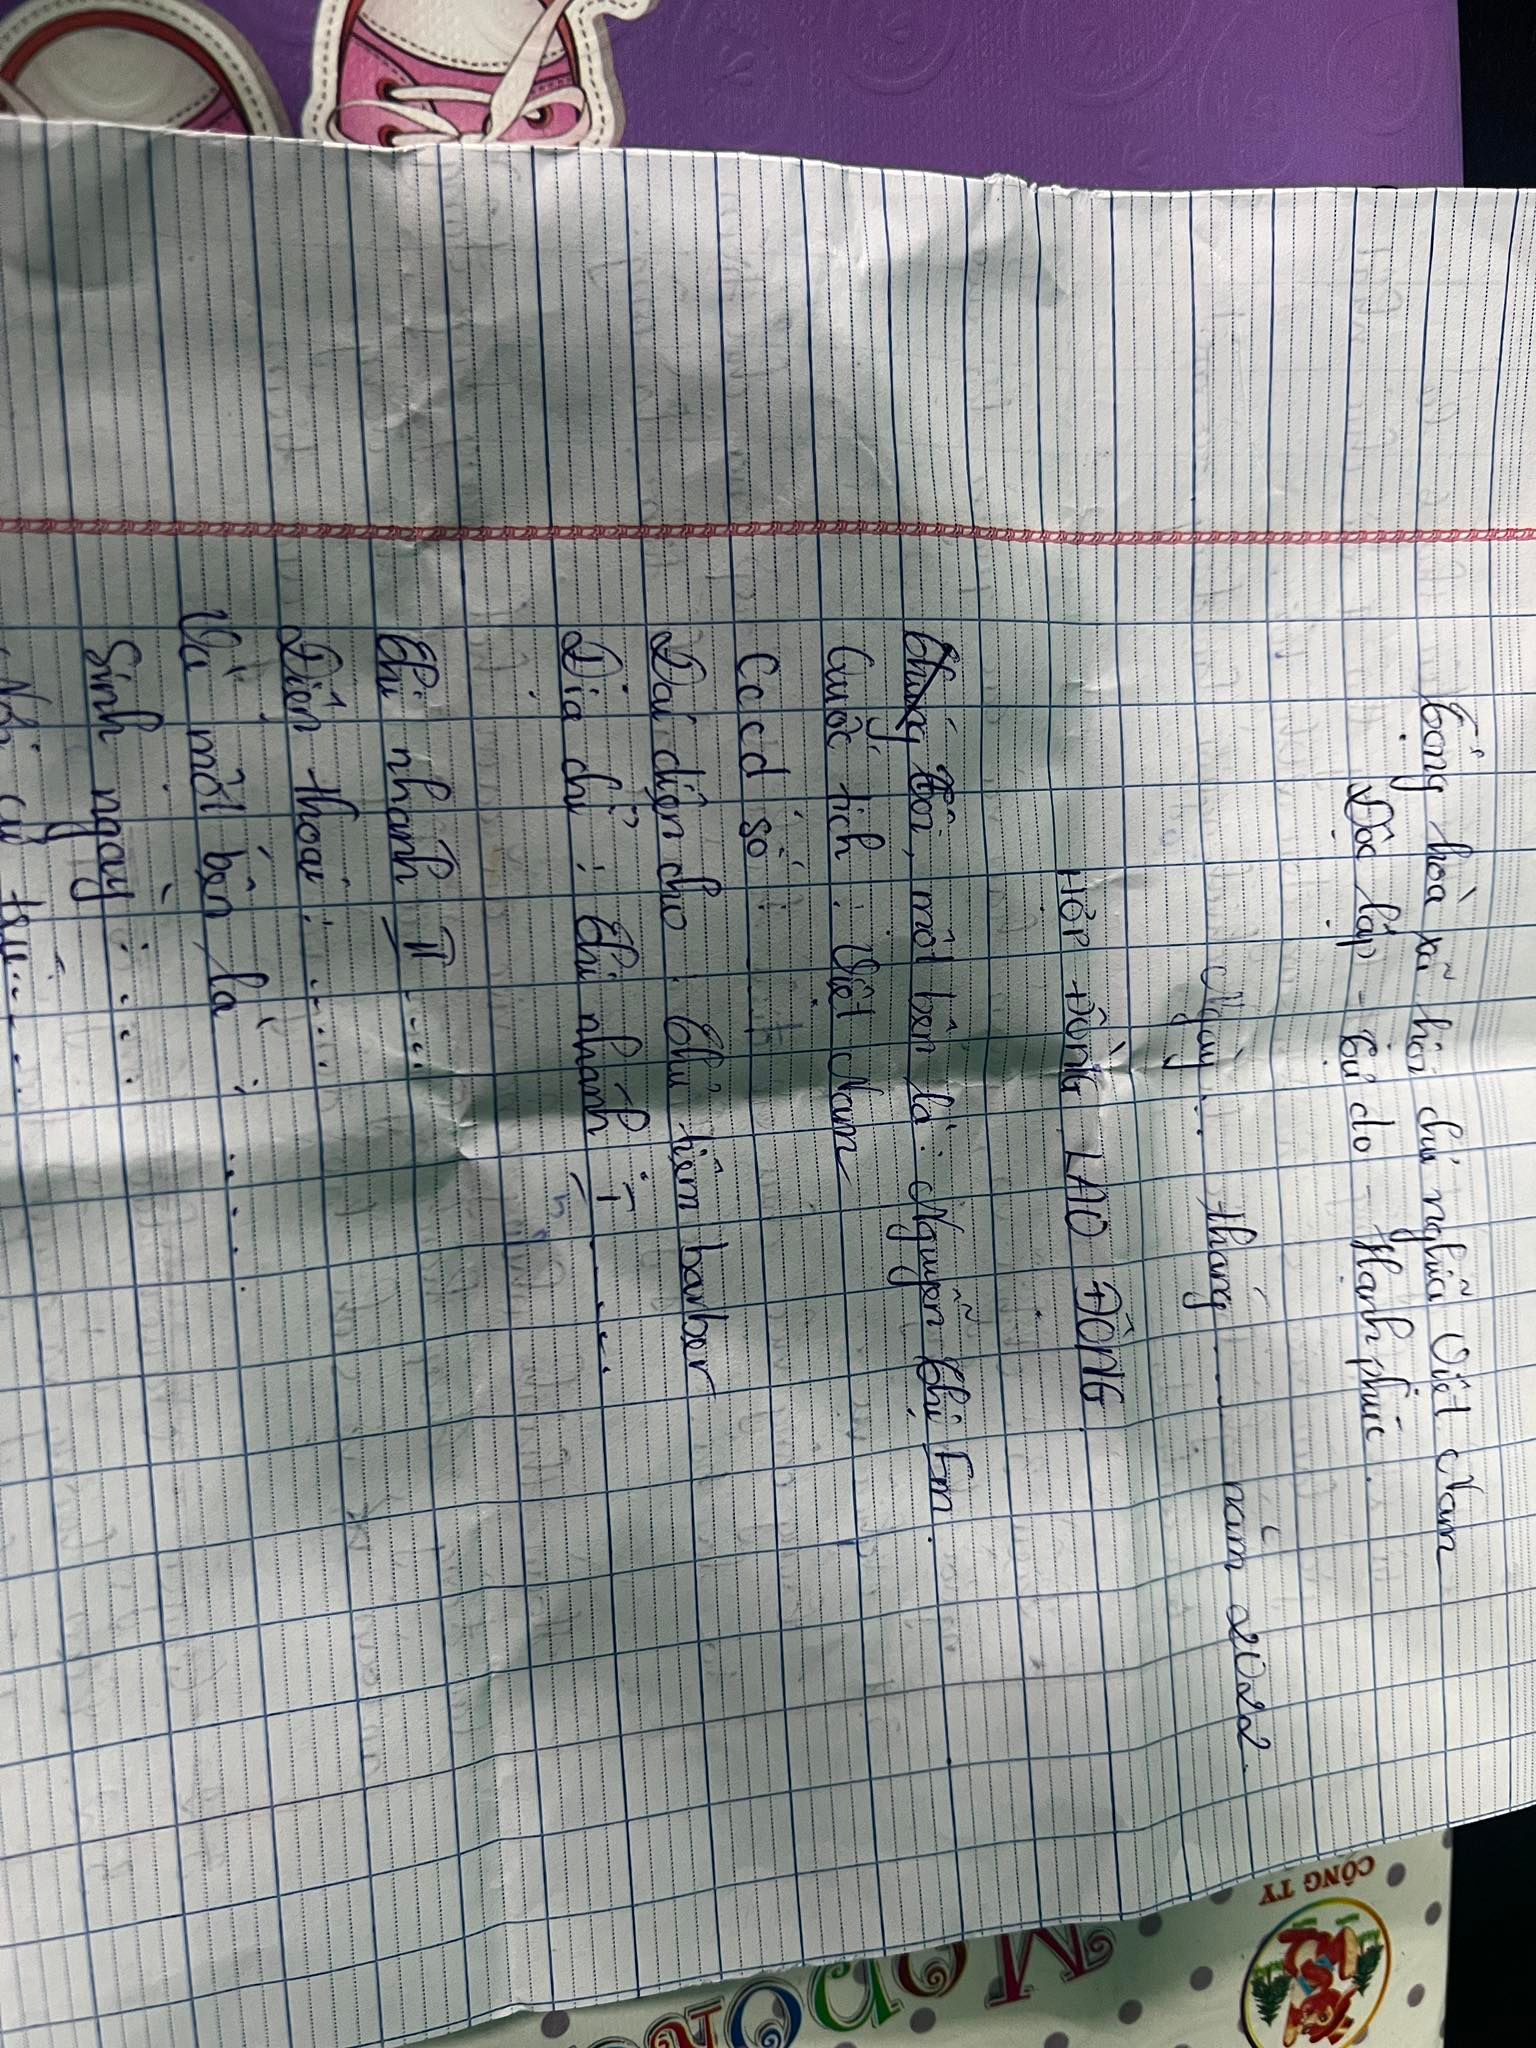 Cộng hoà xã hội chủ nghĩa Việt Nam
Độc lập - Tự do - Hạnh phúc.
Ngày ... tháng .... năm 2022.
HỢP ĐỒNG LAO ĐỘNG
Chúng tôi, một bên là: Nguyễn Thị Em.
Quốc tịch: Việt Nam
Cccd số:
Đại diện cho: Chủ tiệm barber
Địa chỉ: Chi nhánh I ......
Chi nhánh II ....
Điện thoại: .....
Và một bên là: .....
Sinh ngày: ....
Nơi cư trú: ....
CÔNG TY